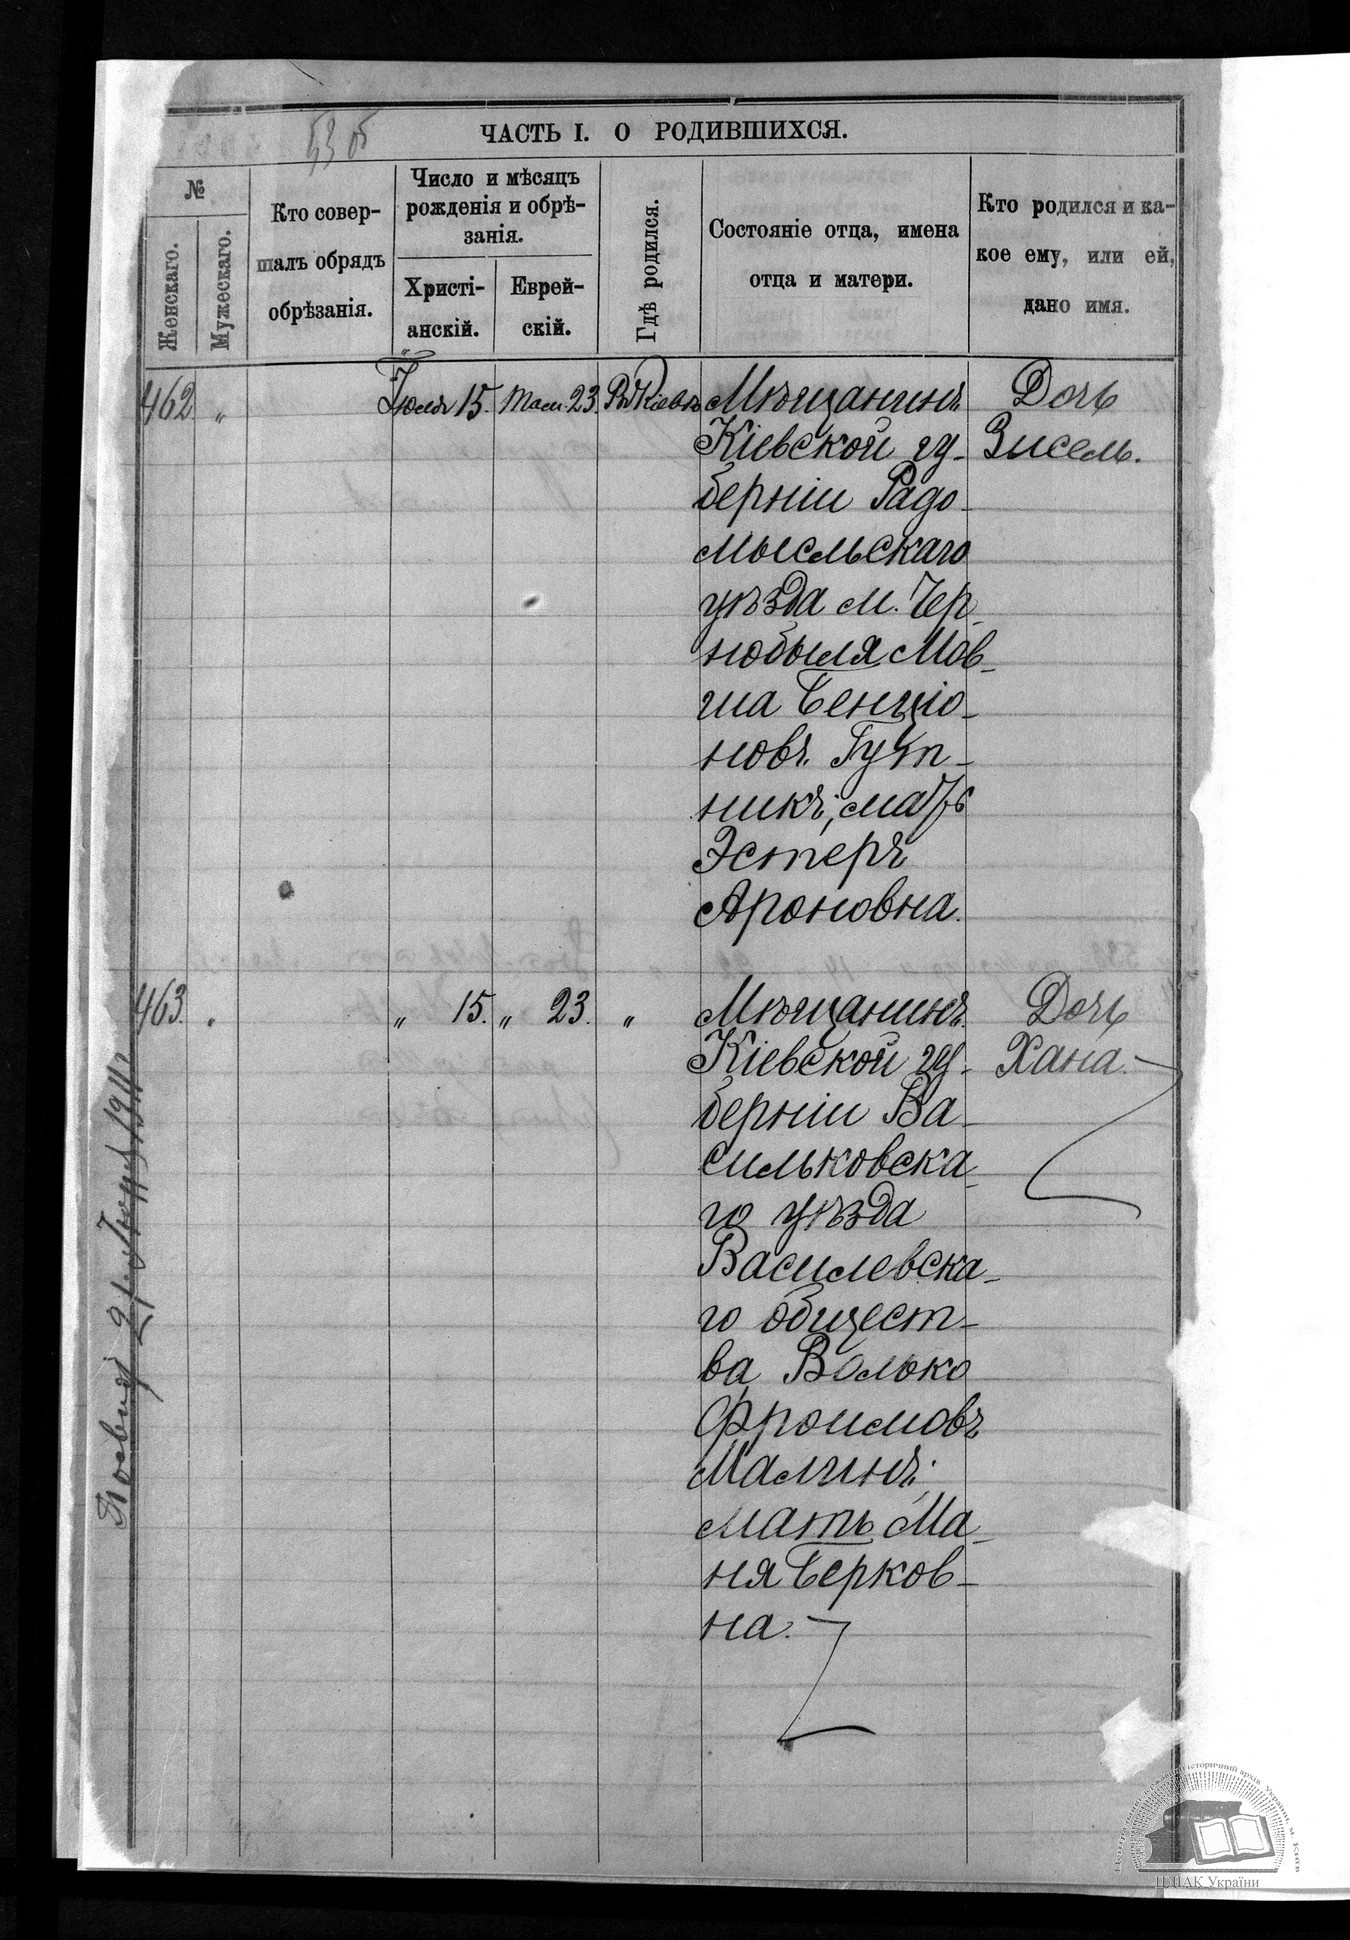 53 об
ЧАСТЬ I. О РОДИВШИХСЯ.
№
Женскаго.
Мужескаго.
Кто совер-
шалъ обрядъ
обрѣзанія.
Число и мѣсяцъ
рожденія и обрѣ-
занія.
Христі-
анскій.
Еврей-
скій.
Гдѣ родился.
Состояніе отца, имена
отца и матери.
Кто родился и ка-
кое ему, или ей,
дано имя.
462 „ Іюля 15. Там. 23. Въ Кіевѣ
Мѣщанинъ
Кіевской гу-
берніи Радо-
мысльскаго
уѣзда м. Чер-
нобыля Мов-
ша Бенціо-
новъ Гут-
никъ, мать
Эстеръ
Ароновна.
Дочь
Зисель.
463. „ „ 15. „ 23. „
Мѣщанинъ
Кіевской гу-
берніи Ва-
сильковска-
го уѣзда
Василевска-
го общест-
ва Волько
Фроимовъ
Малинъ;
мать Ма-
ня Берков-
на.
Дочь
Хана.
1911 г.
ЦДІАК України